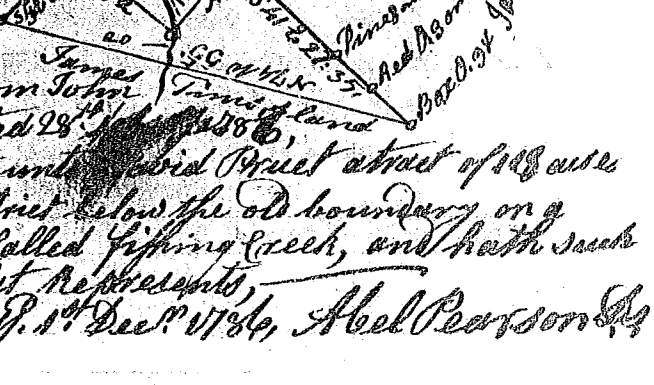 Pines
Red O. 3
Box O. 34
20
James
m John
Tims land
ed 28th 1786,
unto David Pruet a tract of 118 acres
trict below the old boundary on a
Called fishing Creek, and hath such
t Represents,
1st Decr. 1786, Abel Pearson